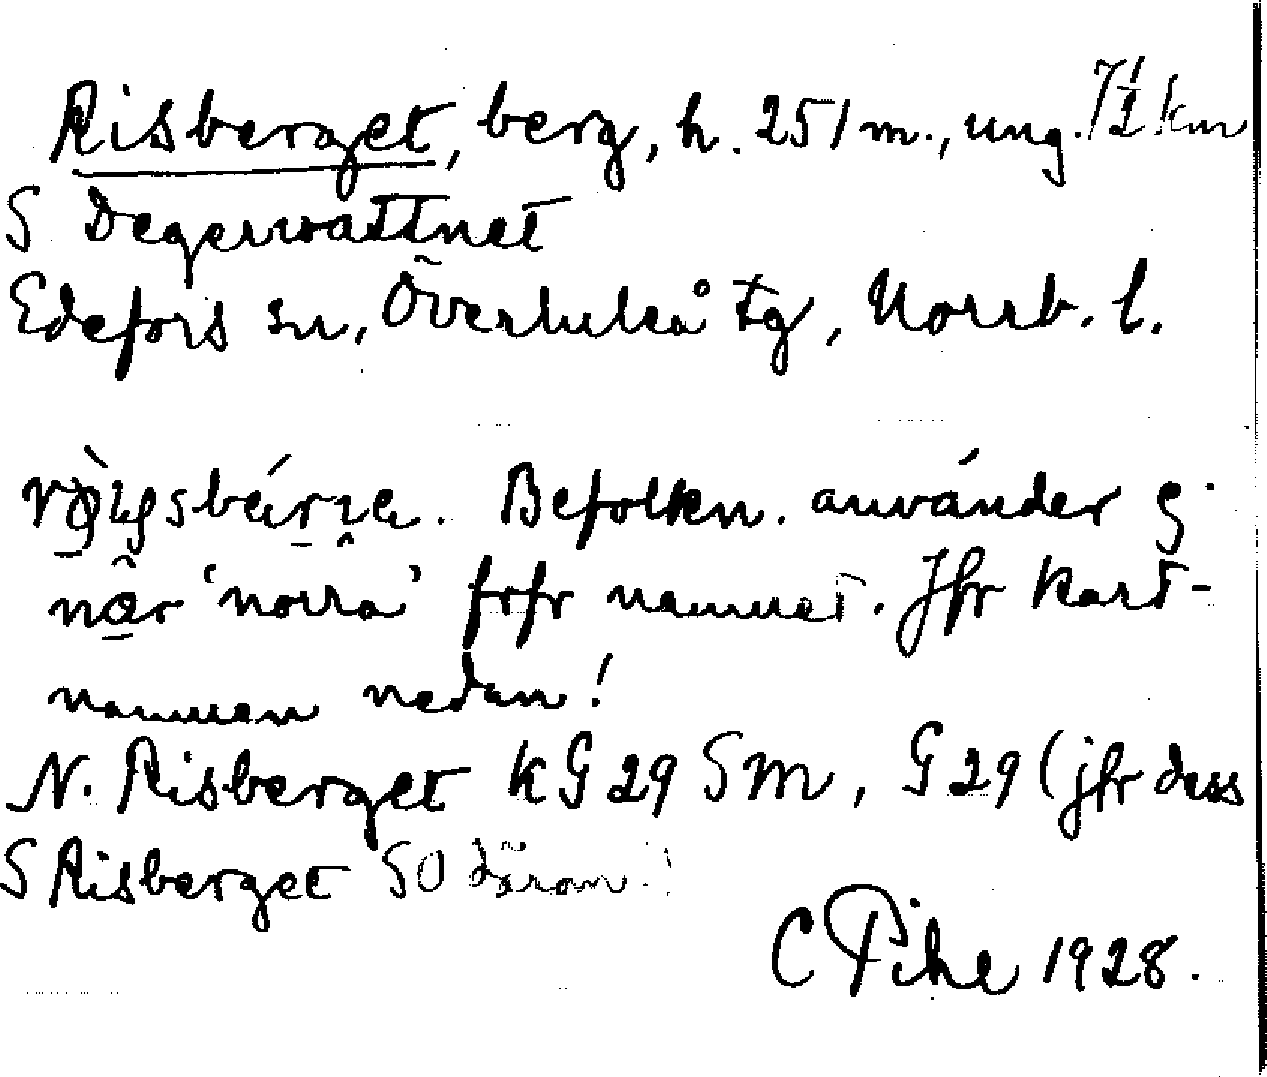 Risberget, berg, h. 251 m., ung. 7½ km
S Degervattnet
Edefors sn, Överluleå tg, Norrb. l.
Befolkn. använder ej
när 'norra' frfr namnet. Jfr kart-
namnen nedan!
N. Risberget kG29 SM, G29 (jfr dess
S Risberget SO därom!
C Pihl 1928.